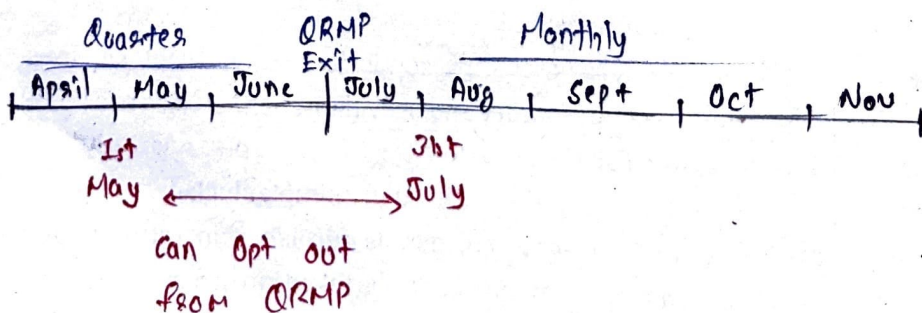 Quarter QRMP Monthly
Exit
April May June July Aug Sept Oct Nov
1st 31st
May July
Can Opt out
from QRMP